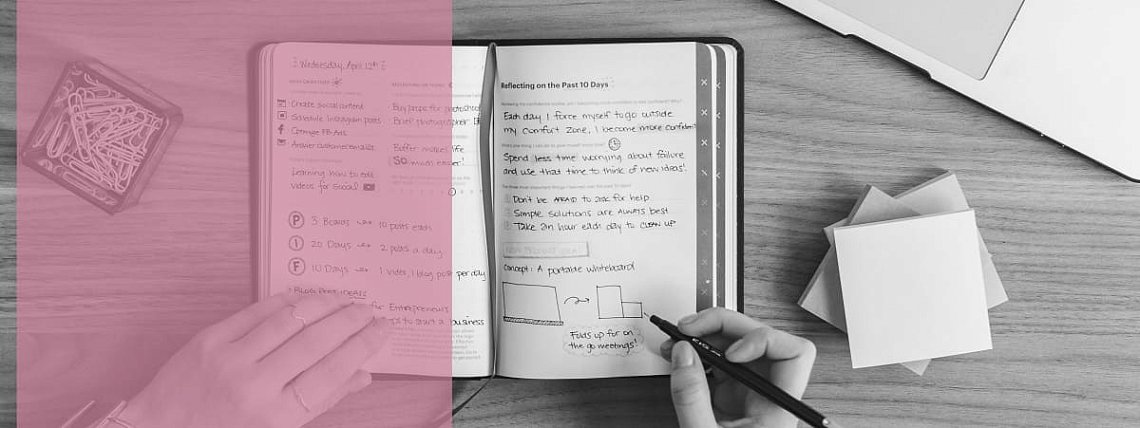 Wednesday, April 12th
Create social content
Schedule Instagram posts
Optimize FB Ads
Answer customer emails
Buy props for photoshoot
Brief photographer
Buffer makes life
SO much easier!
Learning how to edit
videos for Social
P 3 Boards 10 posts each
I 20 Days 2 posts a day
F 10 Days 1 video, 1 blog post per day
Blog Post Ideas
for Entrepreneurs
to start a business
Reflecting on the Past 10 Days
Each day I force myself to go outside
my comfort zone, I become more confident
Spend less time worrying about failure
and use that time to think of new ideas!
Don't be AFRAID to ask for help
Simple solutions are ALWAYS best
Take an hour each day to CLEAN UP
Concept: A portable whiteboard
Folds up for on
the go meetings!